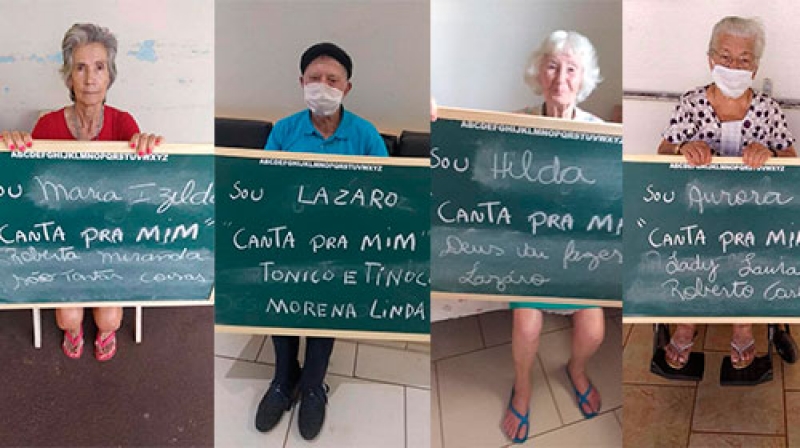 ABCDEFGHIJKLMNOPQRSTUVWXYZ
ou Maria Izilda
CANTA PRA MIM"
Roberta miranda
São tantas coisas
ABCDEFGHIJKLMNOPQRSTUVWXYZ
Sou LAZARO
"CANTA PRA MIM"
TONICO E TINOC
MORENA LINDA
ABCDEFGHIJKLMNOPQRSTUVWXYZ
Sou Hilda
CANTA PRA MI
Deus vai fazer
Lazáro
ABCDEFGHIJKLMNOPQRSTUVWXYZ
Sou Aurora
"CANTA PRA MIM
Lady Laura
Roberto Car